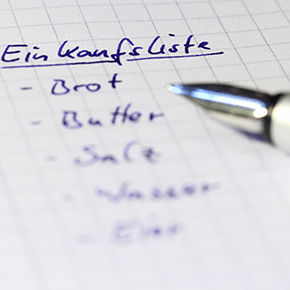 Einkaufsliste
- Brot
- Butter
- Salz
- Wasser
- Eier